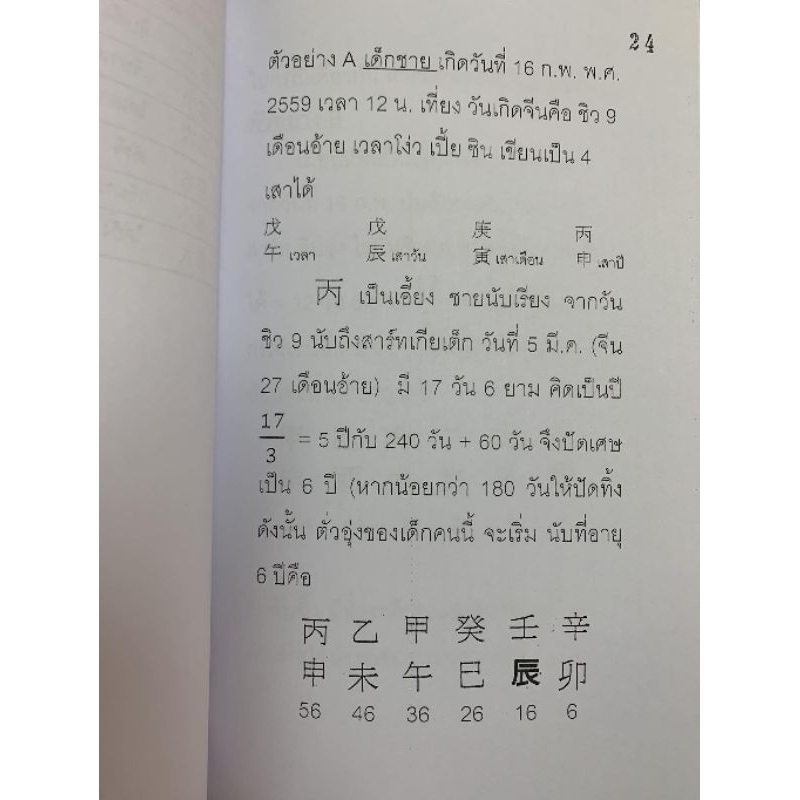 24
ตัวอย่าง A เด็กชาย เกิดวันที่ 16 ก.พ. พ.ศ.
2559 เวลา 12 น. เที่ยง วันเกิดจีนคือ ชิว 9
เดือนอ้าย เวลาโง่ว เปี้ย ซิน เขียนเป็น 4
เสาได้
戊 戊 庚 丙
午 เวลา 辰 เสาวัน 寅 เสาเดือน 申 เสาปี
丙 เป็นเอี้ยง ชายนับเรียง จากวัน
ชิว 9 นับถึงสาร์ทเกียเต็ก วันที่ 5 มี.ค. (จีน
27 เดือนอ้าย) มี 17 วัน 6 ยาม คิดเป็นปี
17/3 = 5 ปีกับ 240 วัน + 60 วัน จึงปัดเศษ
เป็น 6 ปี (หากน้อยกว่า 180 วันให้ปัดทิ้ง
ดังนั้น ตั่วอุ่งของเด็กคนนี้ จะเริ่ม นับที่อายุ
6 ปีคือ
丙 乙 甲 癸 壬 辛
申 未 午 巳 辰 卯
56 46 36 26 16 6